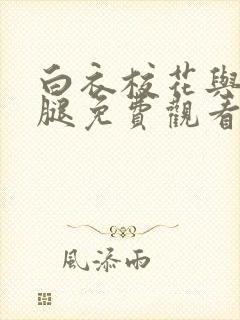 白衣校花與
腿免費觀看
風添雨